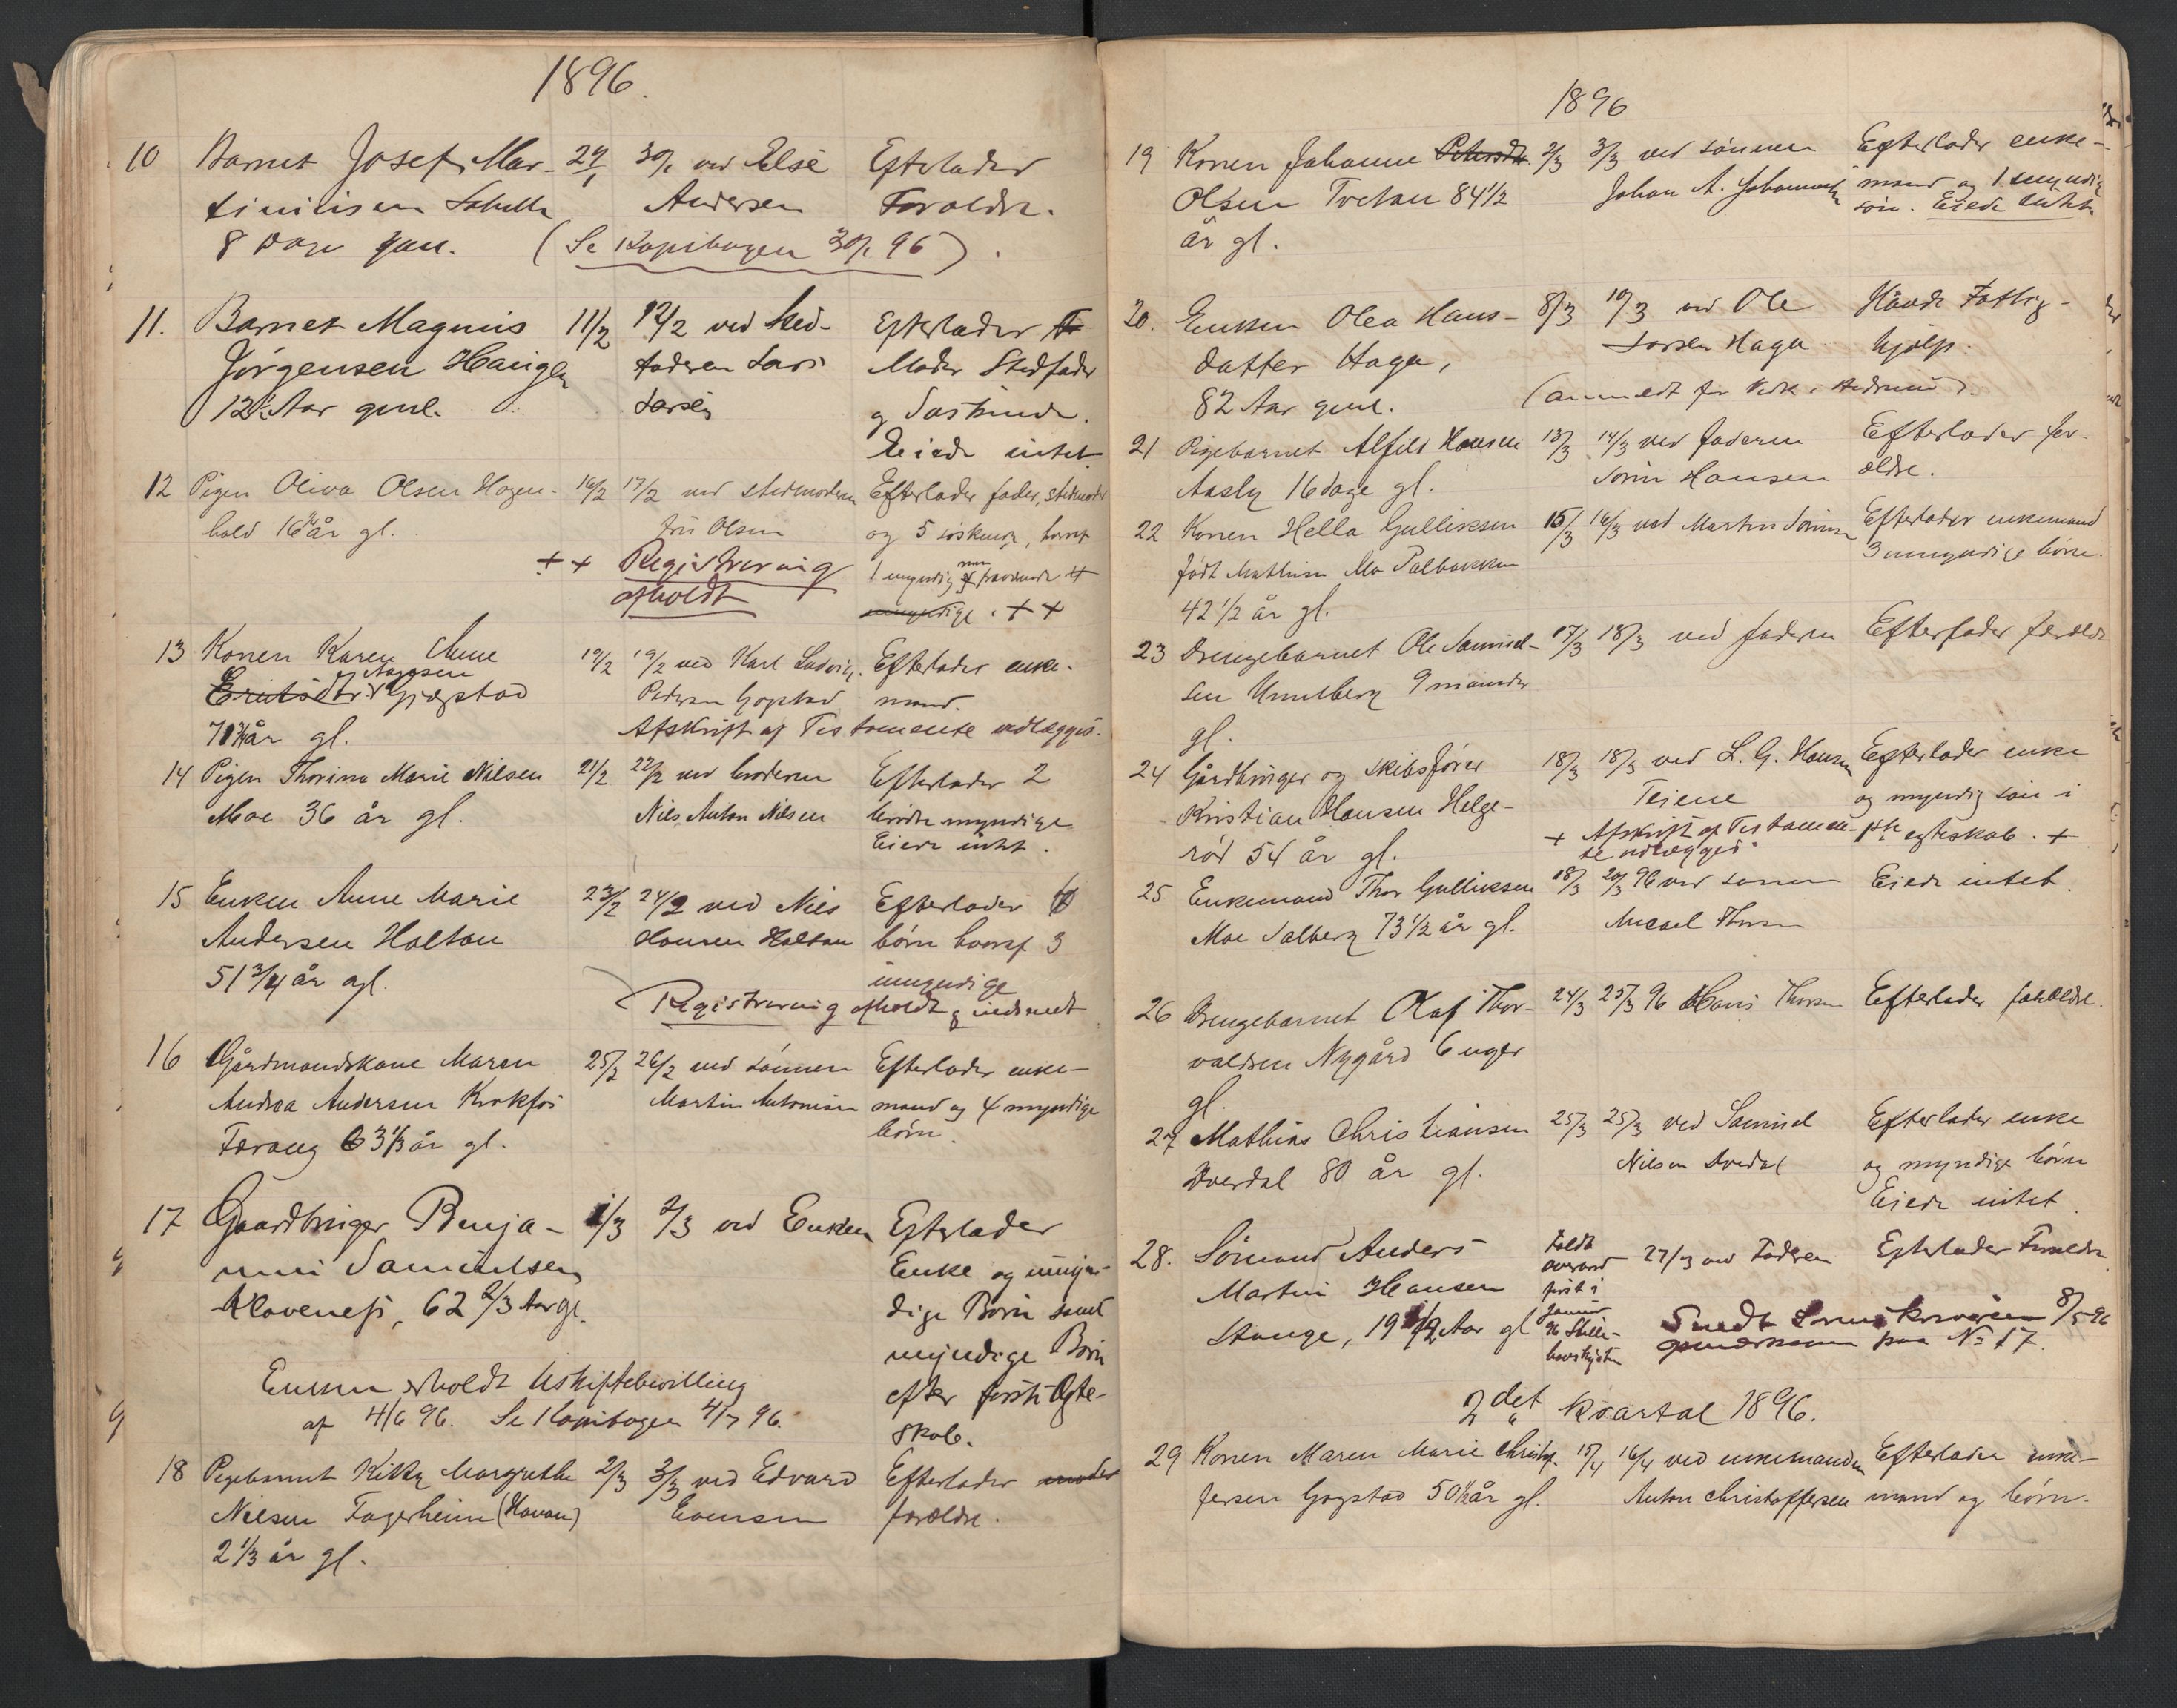 1896.
10 Barnet Josef Mar- 24/1 30/1 ved Else Efterlader
tiniusen Aandersen Forældre.
8 Dage gam. (Se Kopibogen 30/1 96).
11. Barnet Magnus 11/2 12/2 ved Sted- Efterlader
Jørgensen Haugen faderen Lars Moder Stedfader
12 Aar gml. Larsen og Søskende.
Eiede intet
12 Pigen Oliva Olsen Hogen- 16/2 17/2 ved stedmoderen Efterlader fader, stedmoder
hold 16 år gl. Olsen og 5 søskende, hvoraf
++ Registrering 1 myndig
afholdt umyndige. ++
13 Konen Karen Anne 19/2 19/2 ved Karl Ludvig Efterlader enke-
Gjøgstad Pedersen Gogstad mand.
år gl. Afskrift af Testamente vedlægges.
14 Pigen Thorina Marie Nilsen 21/2 22/2 ved broderen Efterlader 2
Moe 36 år gl. Nils Anton Nilsen brødre myndige
Eiede intet.
15 Enken Anne Marie 23/2 24/2 ved Nils Efterlader
Andersen Holtan Hansen Holtan børn hvoraf 3
51 3/4 år gl. umyndige
Registrering afholdt og indsendt
16 Gårdmandskone Maren 25/2 26/2 ved sønnen Efterlader enke-
Andrea Andersen Krokfos Martin Antonisen mand og 4 myndige
63 1/3 år gl. børn.
17 Gaardbruger Benja- 1/3 2/3 ved Enken Efterlader
min Samuelsen Enke og umyn-
Klavenes, 62 2/3 Aar gl. dige Børn samt
myndige Børn
Enken erholdt Uskiftebevilling efter første Ægte-
af 4/6 96. Se Kopibogen 4/7 96. skab.
18 Pigebarnet Kitty Margrethe 2/3 3/3 ved Edvard Efterlader moder
Nielsen Fagerheim (Havan) Evensen forældre.
2 1/3 år gl.
1896
19 Konen Johanne 2/3 3/3 ved sønnen Efterlader enke-
Olsen Tretan 84 1/2 Johan A. Johannesen mand og 1 myndig
år gl. søn. Eiede intet
20. Enken Olea Hans- 8/3 10/3 ved Ole Havde Fattig-
datter Haga, Larsen Haga hjælp.
82 Aar gml. (anmeldt for
21 Pigebarnet Alfild Hansen 13/3 14/3 ved faderen Efterlader for-
Aasly 16 dage gl. Sørin Hansen ældre.
22 Konen Hella Gulliksen 15/3 16/3 ved Martin Efterlader enkemand
født Mathisen Moe 3 umyndige børn.
42 1/2 år gl.
23 Drengebarnet Ole Samuel- 17/3 18/3 ved faderen Efterlader forældre
sen Unneberg 9 maaneder
gl.
24 Gårdbruger og skibsfører 18/3 18/3 ved L. G. Hansen Efterlader enke
Kristian Hansen Helge- Teiene og myndig søn i
rød 54 år gl. + Afskrift af Testamen- 1ste egteskab. +
te vedlægges.
25 Enkemand Thor Gulliksen 18/3 20/3 96 ved sønnen Eiede intet.
Moe Solberg 73 1/2 år gl. Micael Thorsen
26 Drengebarnet Olaf Thor- 24/3 25/3 96 Hans Thorsen Efterlader forældre.
valdsen Nygård 6 uger
gl.
27 Mathias Christiansen 25/3 25/3 ved Samuel Efterlader enke
Dverdal 80 år gl. Nilsen Dverdal og myndige børn
Eiede intet.
28. Sømand Anders Faldt 27/3 ved Faderen Efterlader Forældre
Martin Hansen overbord først i
Stange, 19 1/2 Aar gl Januar 96 8/5 96
paa No 17.
2det Kvartal 1896.
29 Konen Maren Marie Christof- 15/4 16/4 ved enkemanden Efterlader enke-
fersen Gogstad 50 1/2 år gl. Anton Christoffersen mand og børn.